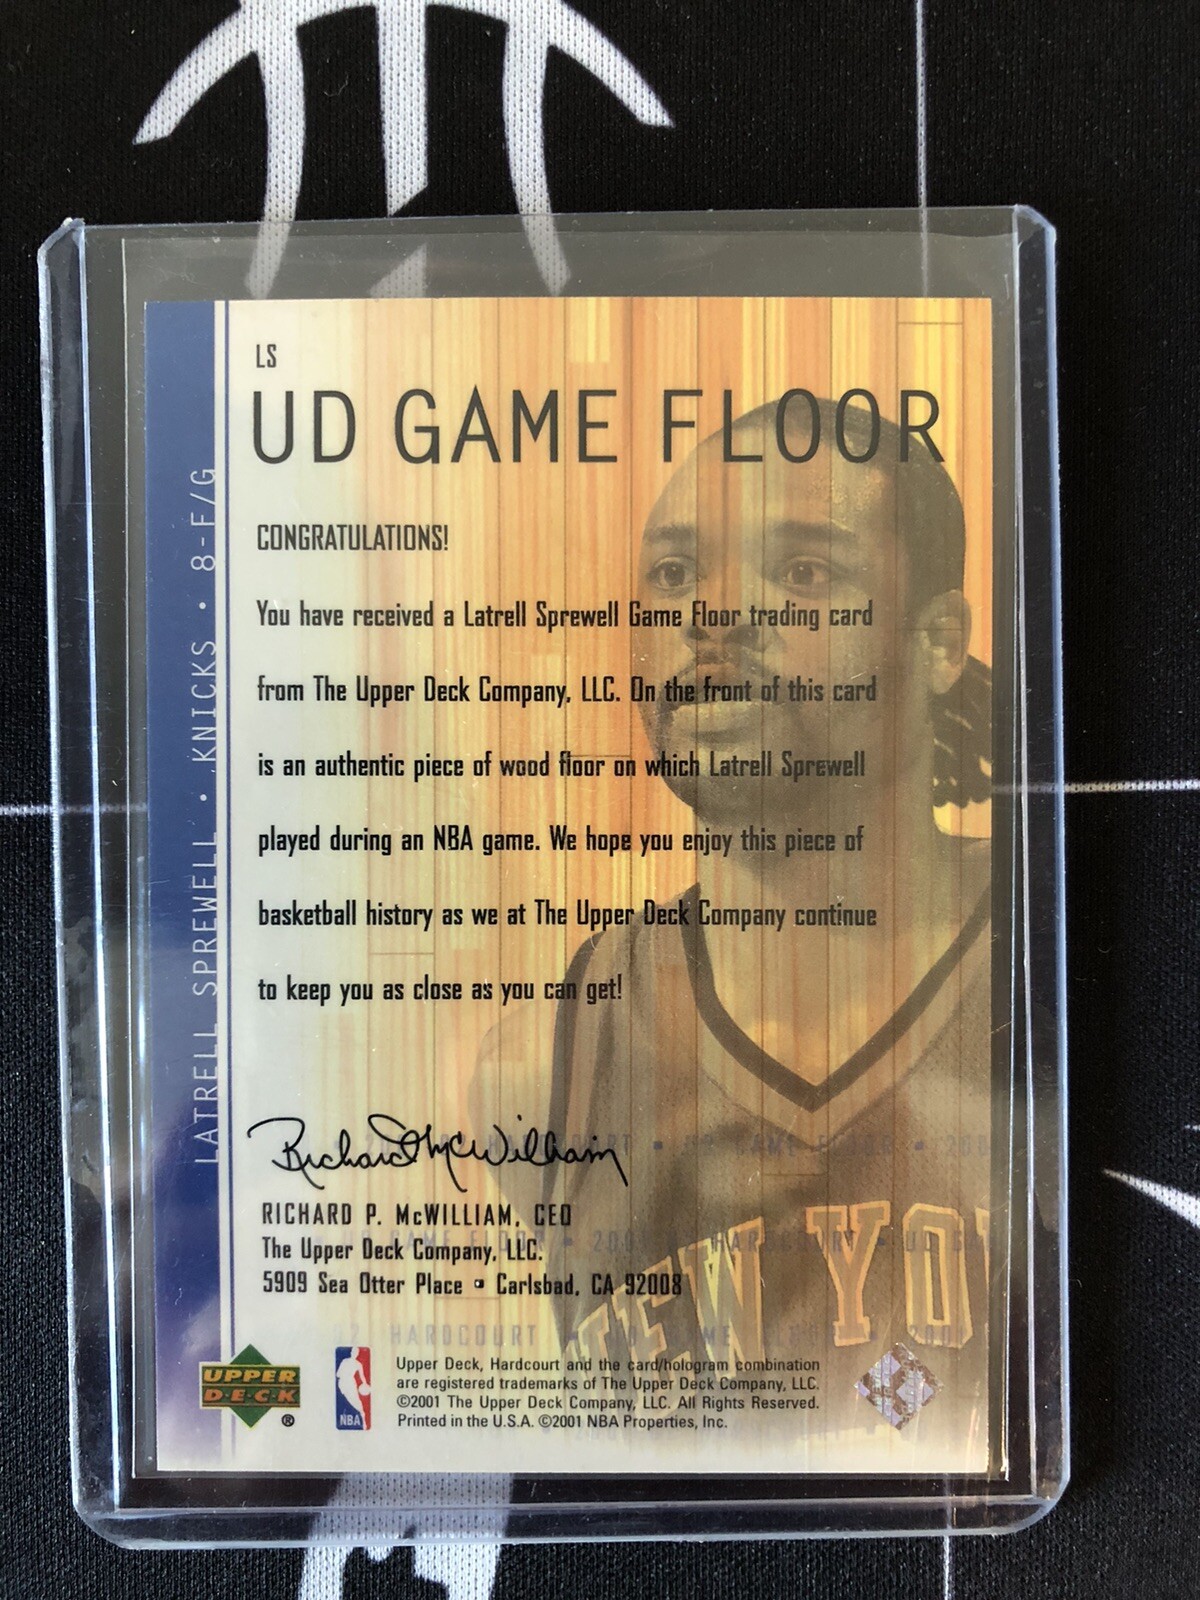 LS
UD GAME FLOOR
CONGRATULATIONS!
You have received a Latrell Sprewell Game Floor trading card
from The Upper Deck Company, LLC. On the front of this card
is an authentic piece of wood floor on which Latrell Sprewell
played during an NBA game. We hope you enjoy this piece of
basketball history as we at The Upper Deck Company continue
to keep you as close as you can get!
LATRELL SPREWELL • KNICKS • 8-F/G
Richard McWilliam
RICHARD P. McWILLIAM, CEO
The Upper Deck Company, LLC.
5909 Sea Otter Place • Carlsbad, CA 92008
NEW YO
HARDCOURT
UPPER
DECK
®
NBA
Upper Deck, Hardcourt and the card/hologram combination
are registered trademarks of The Upper Deck Company, LLC.
©2001 The Upper Deck Company, LLC. All Rights Reserved.
Printed in the U.S.A. ©2001 NBA Properties, Inc.